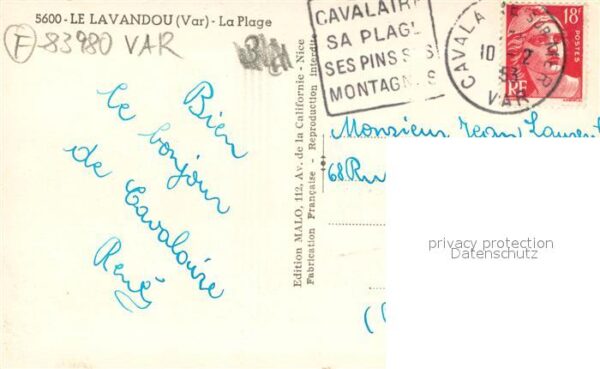 5600 - LE LAVANDOU (Var) - La Plage
F 83980 VAR
Bien
le bonjour
de Cavalaire
René
Edition MALO, 112, Av. de la Californie - Nice
Fabrication Française - Reproduction interdite
CAVALAIRE
SA PLAGE
SES PINS SES
MONTAGNES
CAVALA S/MER
10 - 2
53
VAR
18F
POSTES
RF
Monsieur Jean Laurent
68 Ru
privacy protection
Datenschutz